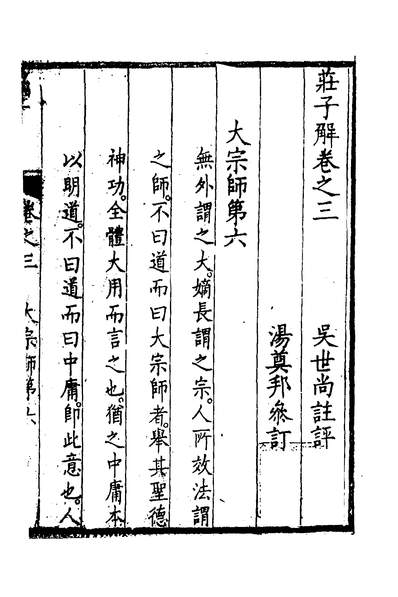 莊子解卷之三
吳世尚註評
湯奠邦叅訂
大宗師第六
無外謂之大。嫡長謂之宗。人所效法謂
之師。不曰道而曰大宗師者。舉其聖德
神功。全體大用而言之也。猶之中庸本
以明道。不曰道而曰中庸。卽此意也。人
卷之三 大宗師第六